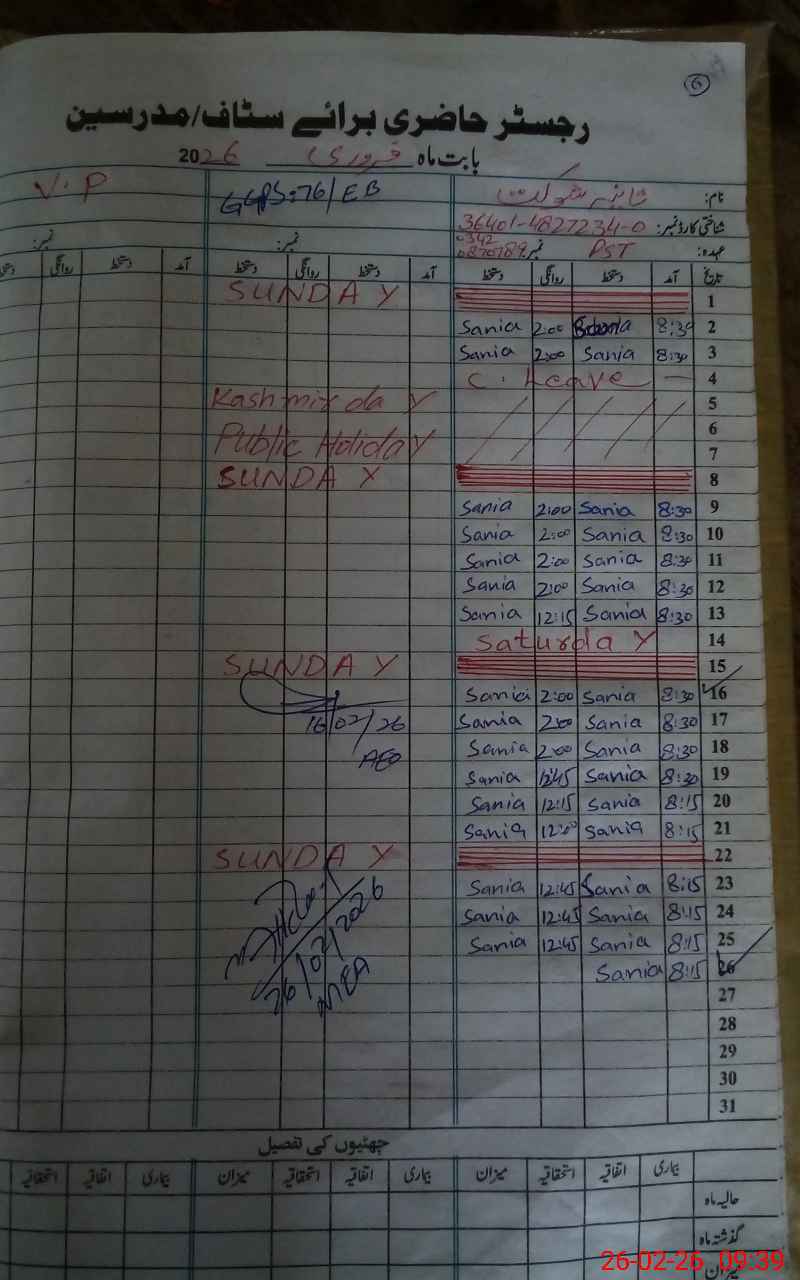 6
رجسٹر حاضری برائے سٹاف/مدرسین
بابت ماہ فروری 2026
V.P
GGPS: 76/EB
نام: ثانیہ شوکت
شناختی کارڈ نمبر: 36401-4827234-0
عہدہ: PST نمبر 0342 0870789
نمبر: نمبر:
تاریخ آمد دستخط روانگی دستخط آمد دستخط روانگی دستخط آمد دستخط روانگی
SUNDAY 1
Sania 2:00 Sania 8:30 2
Sania 2:00 Sania 8:30 3
C. Leave — 4
Kashmir day 5
6
Public Holiday 7
SUNDAY 8
Sania 2:00 Sania 8:30 9
Sania 2:00 Sania 8:30 10
Sania 2:00 Sania 8:30 11
Sania 2:00 Sania 8:30 12
Sania 12:15 Sania 8:30 13
Saturday 14
SUNDAY 15
Sania 2:00 Sania 8:30 16
16/02/26 Sania 2:00 Sania 8:30 17
AEO Sania 2:00 Sania 8:30 18
Sania 12:45 Sania 8:30 19
Sania 12:15 Sania 8:15 20
Sania 12:00 Sania 8:15 21
SUNDAY 22
Sania 12:45 Sania 8:15 23
Sania 12:45 Sania 8:15 24
Sania 12:45 Sania 8:15 25
26/02/2026 Sania 8:15 26
MEA 27
28
29
30
31
چھٹیوں کی تفصیل
بیماری اتفاقیہ استحقاقیہ میزان بیماری اتفاقیہ استحقاقیہ میزان بیماری اتفاقیہ استحقاقیہ
حالیہ ماہ
گذشتہ ماہ
میزان
26-02-26 09:39